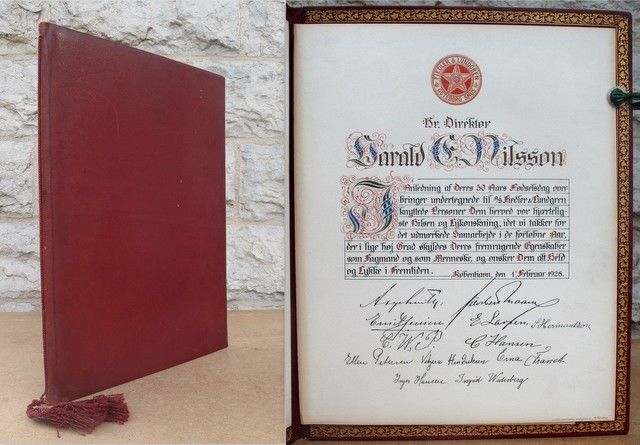 FIEDLER & LUNDGREN
Hr. Direktør
Harald C. Nilsson
I Anledning af Deres 50 Aars Fødselsdag over
bringer undertegnede til A/S Fiedler & Lundgren
knyttede Personer Dem herved vor hjertelig-
ste Hilsen og Lykønskning, idet vi takker for
det udmærkede Samarbejde i de forløbne Aar,
der i lige høj Grad skyldes Deres fremragende Egenskaber
som Fagmand og som Menneske, og ønsker Dem alt Held
og Lykke i Fremtiden.
København, den 1' Februar 1928.
E. Larsen S Hermandsen
E. W. P. C Hansen
Ellen Petersen Vagna Hendriksen Erna
Inger Hansen Ingrid Widerberg